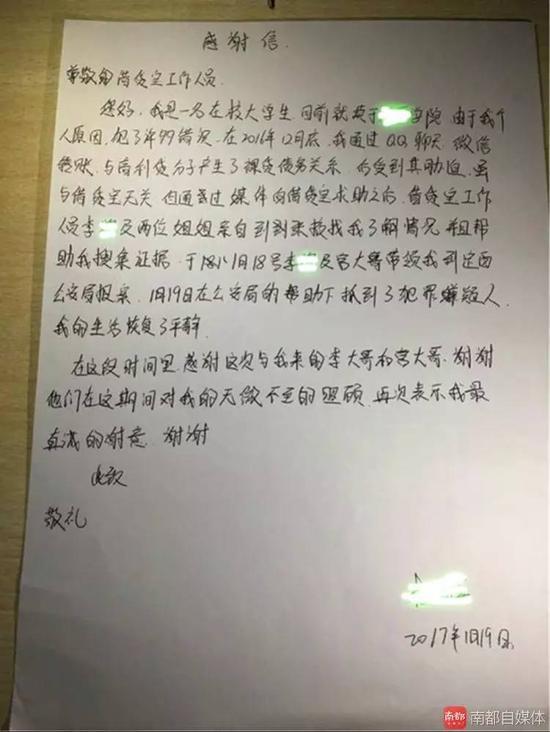 感谢信.
尊敬的借贷宝工作人员.
您好, 我是一名在校大学生 目前就读于 学院 由于我个
人原因, 犯了 错误. 在2016年12月底, 我通过QQ聊天, 微信
转账, 与高利贷分子产生了裸贷债务关系. 后受到其胁迫, 虽
与借贷宝无关 但通过 媒体向借贷宝求助之后, 借贷宝工作
人员李 及两位姐姐亲自到 找我了解情况 并且帮
助我搜集证据. 于 1月18号李 及宫大哥带领我到定西
公安局报案. 1月19日在公安局的帮助下抓到了犯罪嫌疑人.
我的生活恢复了平静.
在这段时间里, 感谢这次与我来的李大哥和宫大哥, 谢谢
他们在这期间对我的无微不至的照顾, 再次表示我最
真诚的谢意. 谢谢
此致
敬礼
2017年1月19日.
南都 南都自媒体